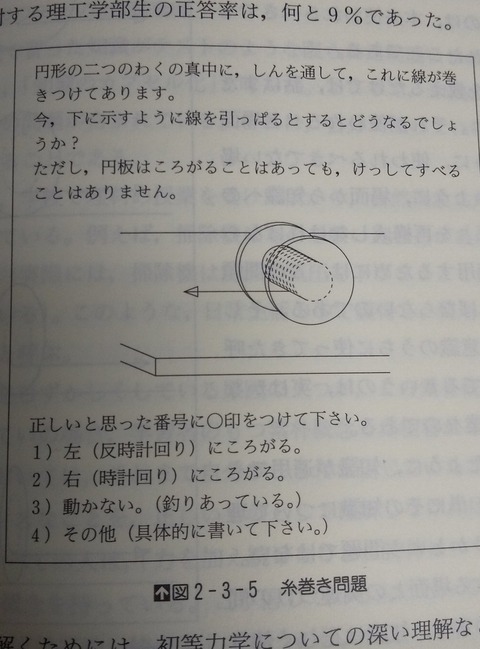 対する理工学部生の正答率は，何と9％であった。
円形の二つのわくの真中に，しんを通して，これに線が巻
きつけてあります。
今，下に示すように線を引っぱるとするとどうなるでしょ
うか？
ただし，円板はころがることはあっても，けっしてすべる
ことはありません。
正しいと思った番号に〇印をつけて下さい。
1）左（反時計回り）にころがる。
2）右（時計回り）にころがる。
3）動かない。（釣りあっている。）
4）その他（具体的に書いて下さい。）
図2-3-5　糸巻き問題
解くためには，初等力学についての深い理解な